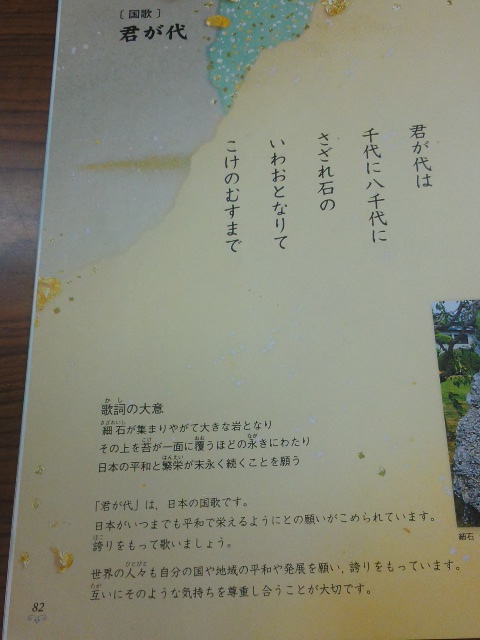 ［国歌］
君が代
君が代は
千代に八千代に
さざれ石の
いわおとなりて
こけのむすまで
歌詞の大意
細石が集まりやがて大きな岩となり
その上を苔が一面に覆うほどの永きにわたり
日本の平和と繁栄が末永く続くことを願う
「君が代」は、日本の国歌です。
日本がいつまでも平和で栄えるようにとの願いがこめられています。
誇りをもって歌いましょう。
世界の人々も自分の国や地域の平和や発展を願い、誇りをもっています。
互いにそのような気持ちを尊重し合うことが大切です。
細石
82